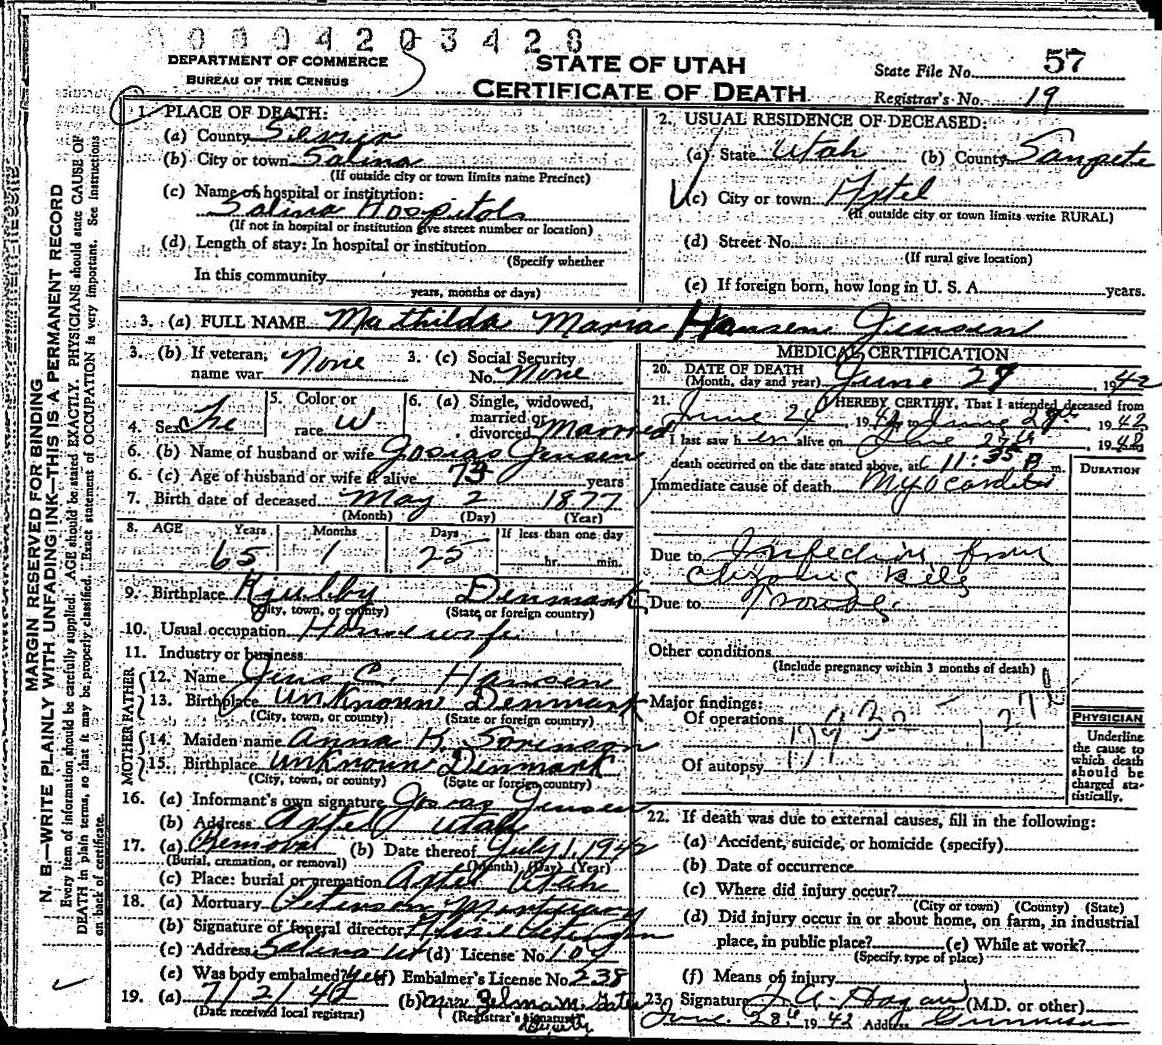 0 0 0 0 4 2 0 3 4 2 8
DEPARTMENT OF COMMERCE
BUREAU OF THE CENSUS
STATE OF UTAH
CERTIFICATE OF DEATH
State File No. 57
Registrar's No. 19
MARGIN RESERVED FOR BINDING
N. B.—WRITE PLAINLY WITH UNFADING INK—THIS IS A PERMANENT RECORD
Every item of information should be carefully supplied. AGE should be stated EXACTLY. PHYSICIANS should state CAUSE OF
DEATH in plain terms, so that it may be properly classified. Exact statement of OCCUPATION is very important. See instructions
on back of certificate.
1. PLACE OF DEATH:
(a) County Sevier
(b) City or town Salina
(If outside city or town limits name Precinct)
(c) Name of hospital or institution:
Salina Hospital
(If not in hospital or institution give street number or location)
(d) Length of stay: In hospital or institution
(Specify whether
In this community
years, months or days)
2. USUAL RESIDENCE OF DECEASED:
(a) State Utah (b) County Sanpete
(c) City or town Axtel
(If outside city or town limits write RURAL)
(d) Street No.
(If rural give location)
(e) If foreign born, how long in U. S. A. years.
3. (a) FULL NAME Mathilda Maria Hansen Jensen
3. (b) If veteran, name war None
3. (c) Social Security No. None
4. Sex Fe
5. Color or race W
6. (a) Single, widowed, married or divorced Married
6. (b) Name of husband or wife Josias Jensen
6. (c) Age of husband or wife if alive 73 years
7. Birth date of deceased May 2 1877
(Month) (Day) (Year)
8. AGE Years Months Days If less than one day
65 1 25 hr. min.
9. Birthplace Denmark
(City, town, or county) (State or foreign country)
10. Usual occupation Housewife
11. Industry or business
FATHER
12. Name Jens C. Hansen
13. Birthplace unknown Denmark
(City, town, or county) (State or foreign country)
MOTHER
14. Maiden name Anna K. Sorenson
15. Birthplace unknown Denmark
(City, town, or county) (State or foreign country)
16. (a) Informant's own signature Josias Jensen
(b) Address Axtel Utah
17. (a) Removal (b) Date thereof July 1, 1942
(Burial, cremation, or removal) (Month) (Day) (Year)
(c) Place: burial or cremation Axtel Utah
18. (a) Mortuary Peterson Mortuary
(b) Signature of funeral director
(c) Address Salina Ut (d) License No. 109
(e) Was body embalmed? Yes (f) Embalmer's License No. 238
19. (a) 7/2/42 (b) Mrs Zelma M.
(Date received local registrar) (Registrar's signature)
Deputy
MEDICAL CERTIFICATION
20. DATE OF DEATH
(Month, day and year) June 27, 1942
21. I HEREBY CERTIFY, That I attended deceased from
June 24, 1942 to June 27th, 1942
I last saw her alive on June 27th 1942
death occurred on the date stated above, at 11:35 P m.
DURATION
Immediate cause of death Myocarditis
Due to Infection from
Chronic Bile
Due to Trouble
Other conditions
(Include pregnancy within 3 months of death)
Major findings:
Of operations
Of autopsy
PHYSICIAN
Underline
the cause to
which death
should be
charged sta-
tistically.
22. If death was due to external causes, fill in the following:
(a) Accident, suicide, or homicide (specify)
(b) Date of occurrence
(c) Where did injury occur?
(City or town) (County) (State)
(d) Did injury occur in or about home, on farm, in industrial
place, in public place? (e) While at work?
(Specify type of place)
(f) Means of injury
23. Signature J. A. Hagan (M.D. or other)
June 28th 1942 Address Gunnison